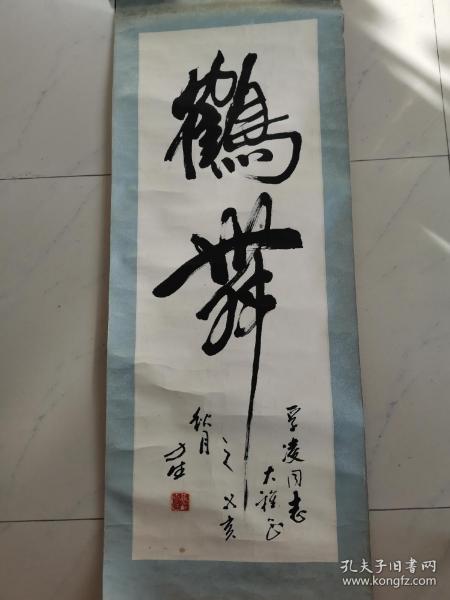 鶴舞
学凌同志
大雅正
之 乙亥
秋月
方生
孔夫子旧书网
www.kongfz.com